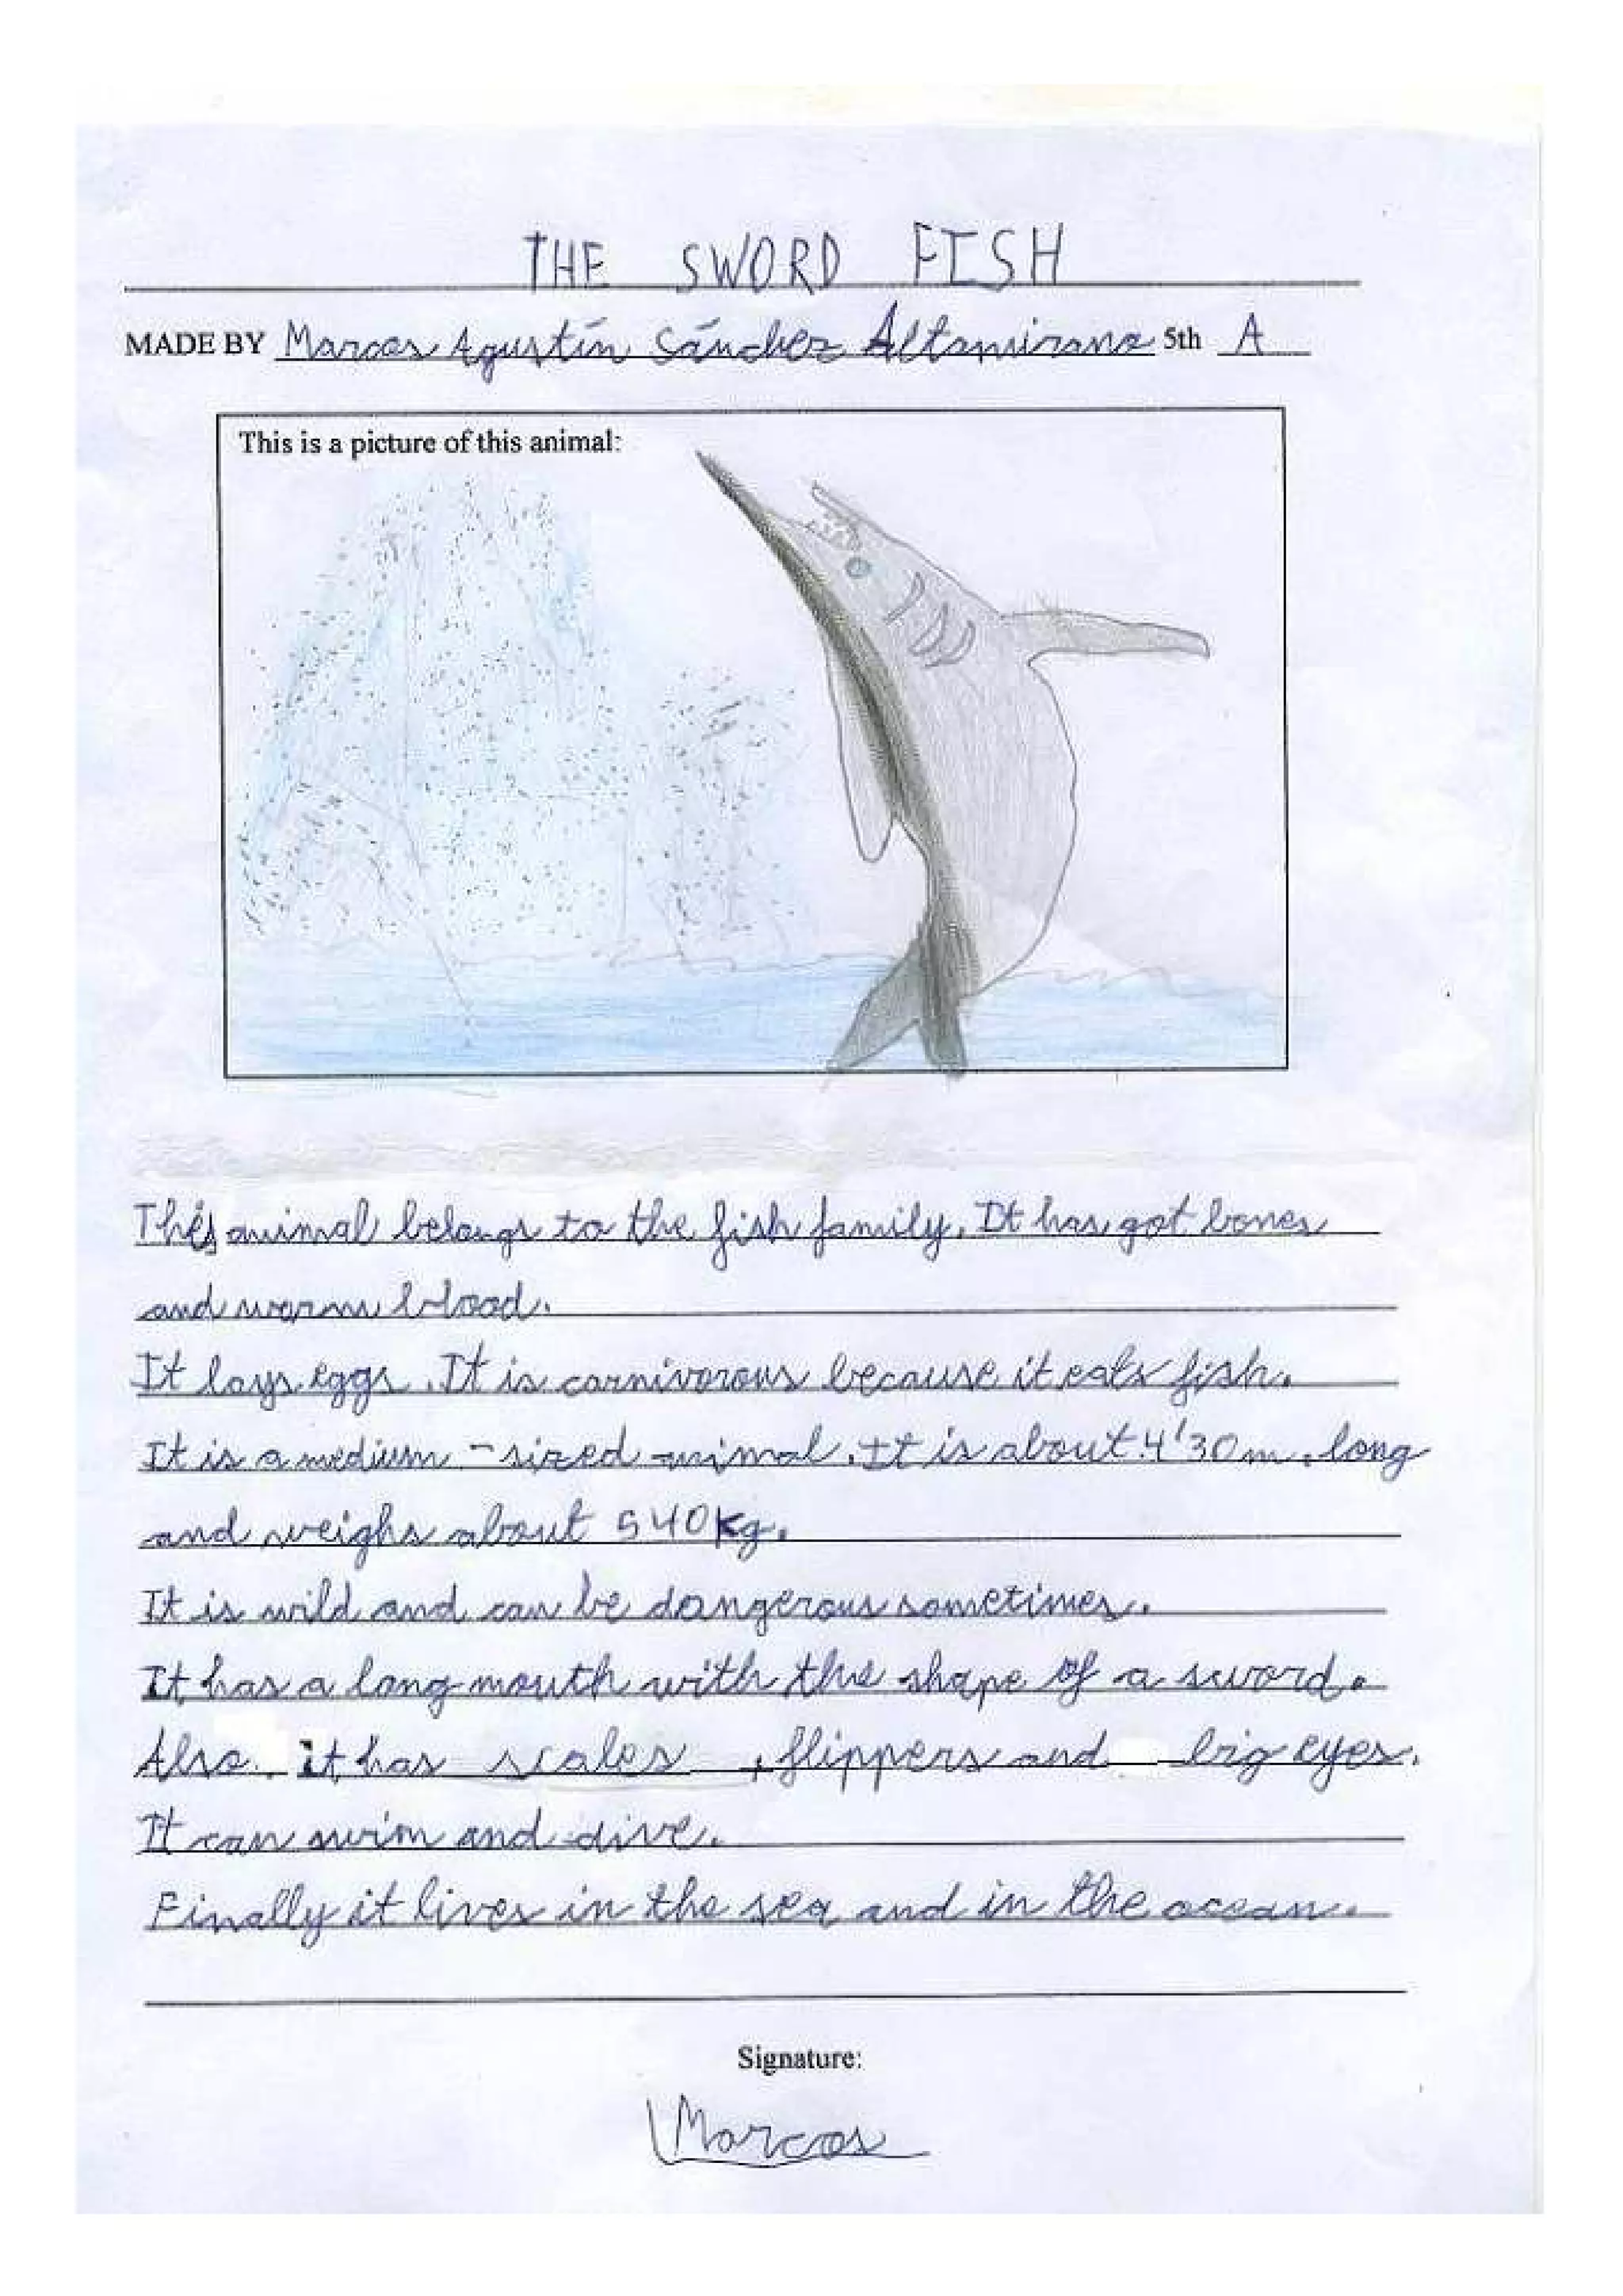 THE SWORD FISH
MADE BY Marcos Agustín Sánchez Altamirano 5th A
This is a picture of this animal:
This animal belongs to the fish family. It has got bones
and warm blood.
It lays eggs. It is carnivorous because it eats fish.
It is a medium-sized animal. It is about 4'30 m. long
and weighs about 540 kg.
It is wild and can be dangerous sometimes.
It has a long mouth with the shape of a sword.
Also it has scales, flippers and big eyes.
It can swim and dive.
Finally it lives in the sea and in the ocean.
Signature:
Marcos